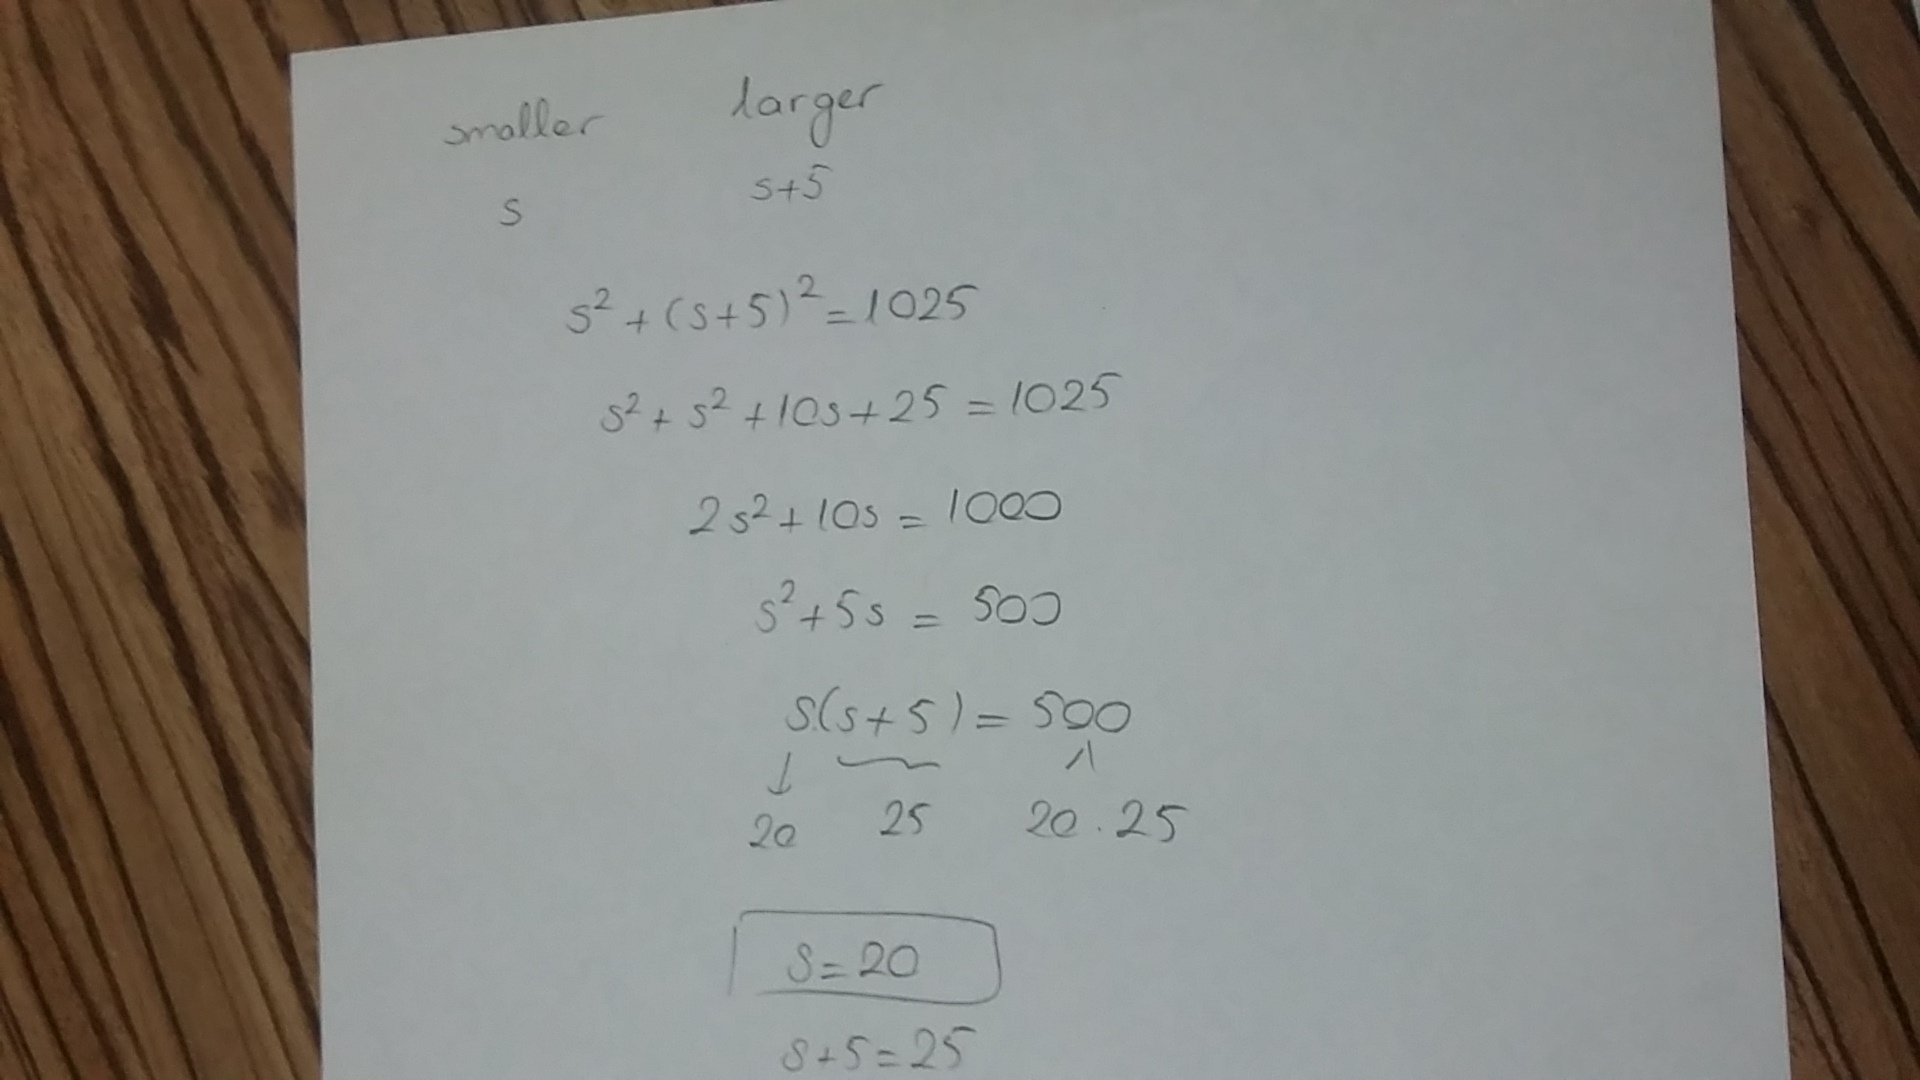 smaller larger
s s+5
s²+(s+5)²=1025
s²+s²+10s+25=1025
2s²+10s=1000
s²+5s=500
s(s+5)=500
20 25 20.25
s=20
s+5=25